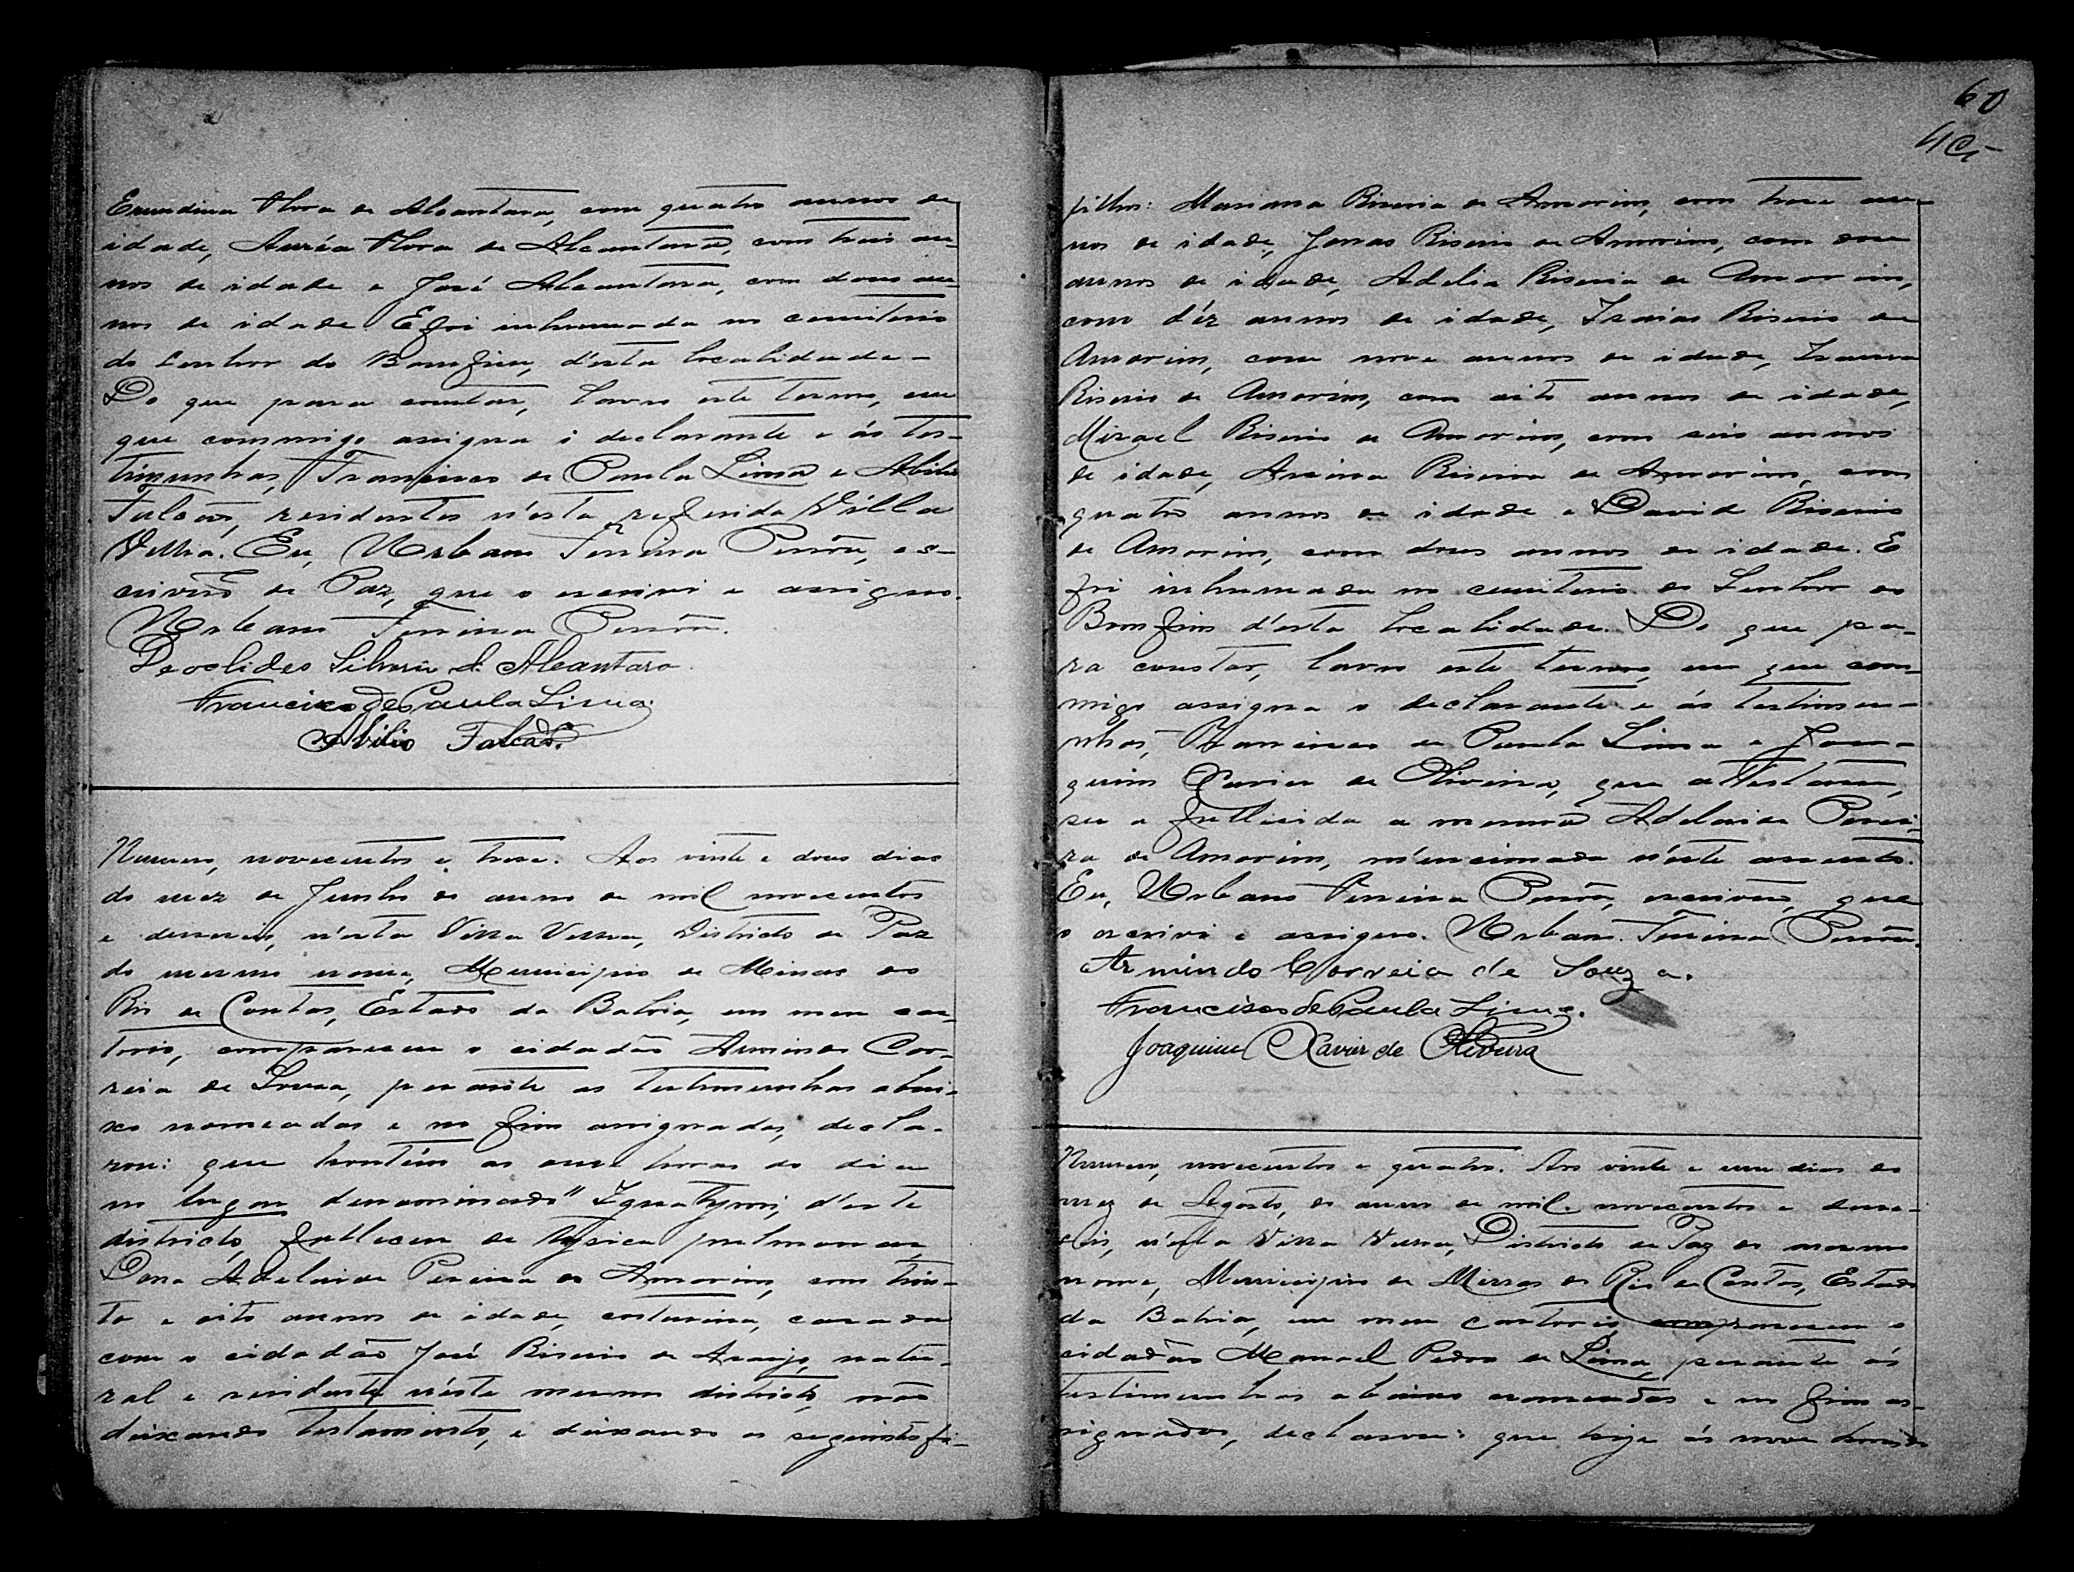 Erundina Flora de Alcantara, com quatro annos de
idade, Auréa Flora de Alcantara, com treis an-
nos de idade e José Alcantara, com dous an-
nos de idade. E foi inhumada no cemiterio
do Senhor do Bomfim, d'esta localidade -
Do que para constar, lavro este termo, em
que commigo assigna o declarante e ás tes-
timunhas, Francisco de Paula Lima e Abilio
Falcão, residentes n'esta referida Villa
Velha. Eu, Urbano Ferreira, es-
crivão de Paz, que o escrivi e assigno.
Urbano Ferreira
Deoclides Silverio d. Alcantara.
Francisco de Paula Lima.
Abilio Falcão.
Numero, novecentos e trese. Aos vinte e dous dias
do mez de Junho do anno de mil novecentos
e desseseis, n'esta Villa Velha, Districto de Paz
do mesmo nome, Municipio de Minas do
Rio de Contas, Estado da Bahia, em meu car-
torio, compareceu o cidadão Armindo Cor-
reia de Souza, perante as testimunhas abai-
xo nomeadas e no fim assignadas, decla-
rou: que hontém as onze horas do dia
no lugar denominado "Iguatymi, d'este
districto, falleceu de tysica pulmonar,
Dona Adelaide Pereira de Amorim, com trin-
ta e oito annos de idade, costureira, casada
com o cidadão José Riserio de Araujo, natu-
ral e residente n'éste mesmo districto, não
deixando testamento, e deixando os seguintes fi-
60
filhos: Mariana Riseria de Amorim, com trese an-
nos de idade, Jonas Riserio de Amorim, com dose
annos de idade, Adelia Riseria de Amorim,
com déz annos de idade, Isaias Riserio de
Amorim, com nove annos de idade, Isaura
Riserio de Amorim, com oito annos de idade,
Mizael Riserio de Amorim, com seis annos
de idade, Riseria de Amorim, com
quatro annos de idade e David Riserio
de Amorim, com dous annos de idade. E
foi inhumada no cemiterio do Senhor do
Bomfim d'esta localidade. Do que pa-
ra constar, lavro este termo, em que com-
migo assigna o declarante e ás testimu-
nhas, Francisco de Paula Lima e Joa-
quim Xavier de Oliveira, que attestam,
ser a fallecida a mesma Adelaide Perei-
ra de Amorim, mencionada n'este assento.
Eu, Urbano Ferreira, escrivão, que
o escrivi e assigno. Urbano Ferreira
Armindo Correia de Souza.
Francisco de Paula Lima.
Joaquim Xavier de Oliveira
Numero, novecentos e quatro. Aos vinte e um dias do
mez de Agosto, do anno de mil novecentos e desse-
seis, n'esta Villa Velha, Districto de Paz do mesmo
nome, Municipio de Minas do Rio de Contas, Estado
da Bahia, em meu cartorio, compareceu o
cidadão Manoel Pedro de Lima, perante ás
testimunhas abaixo nomeadas e no fim as-
signadas, declarou: que hoje ás nove horas do